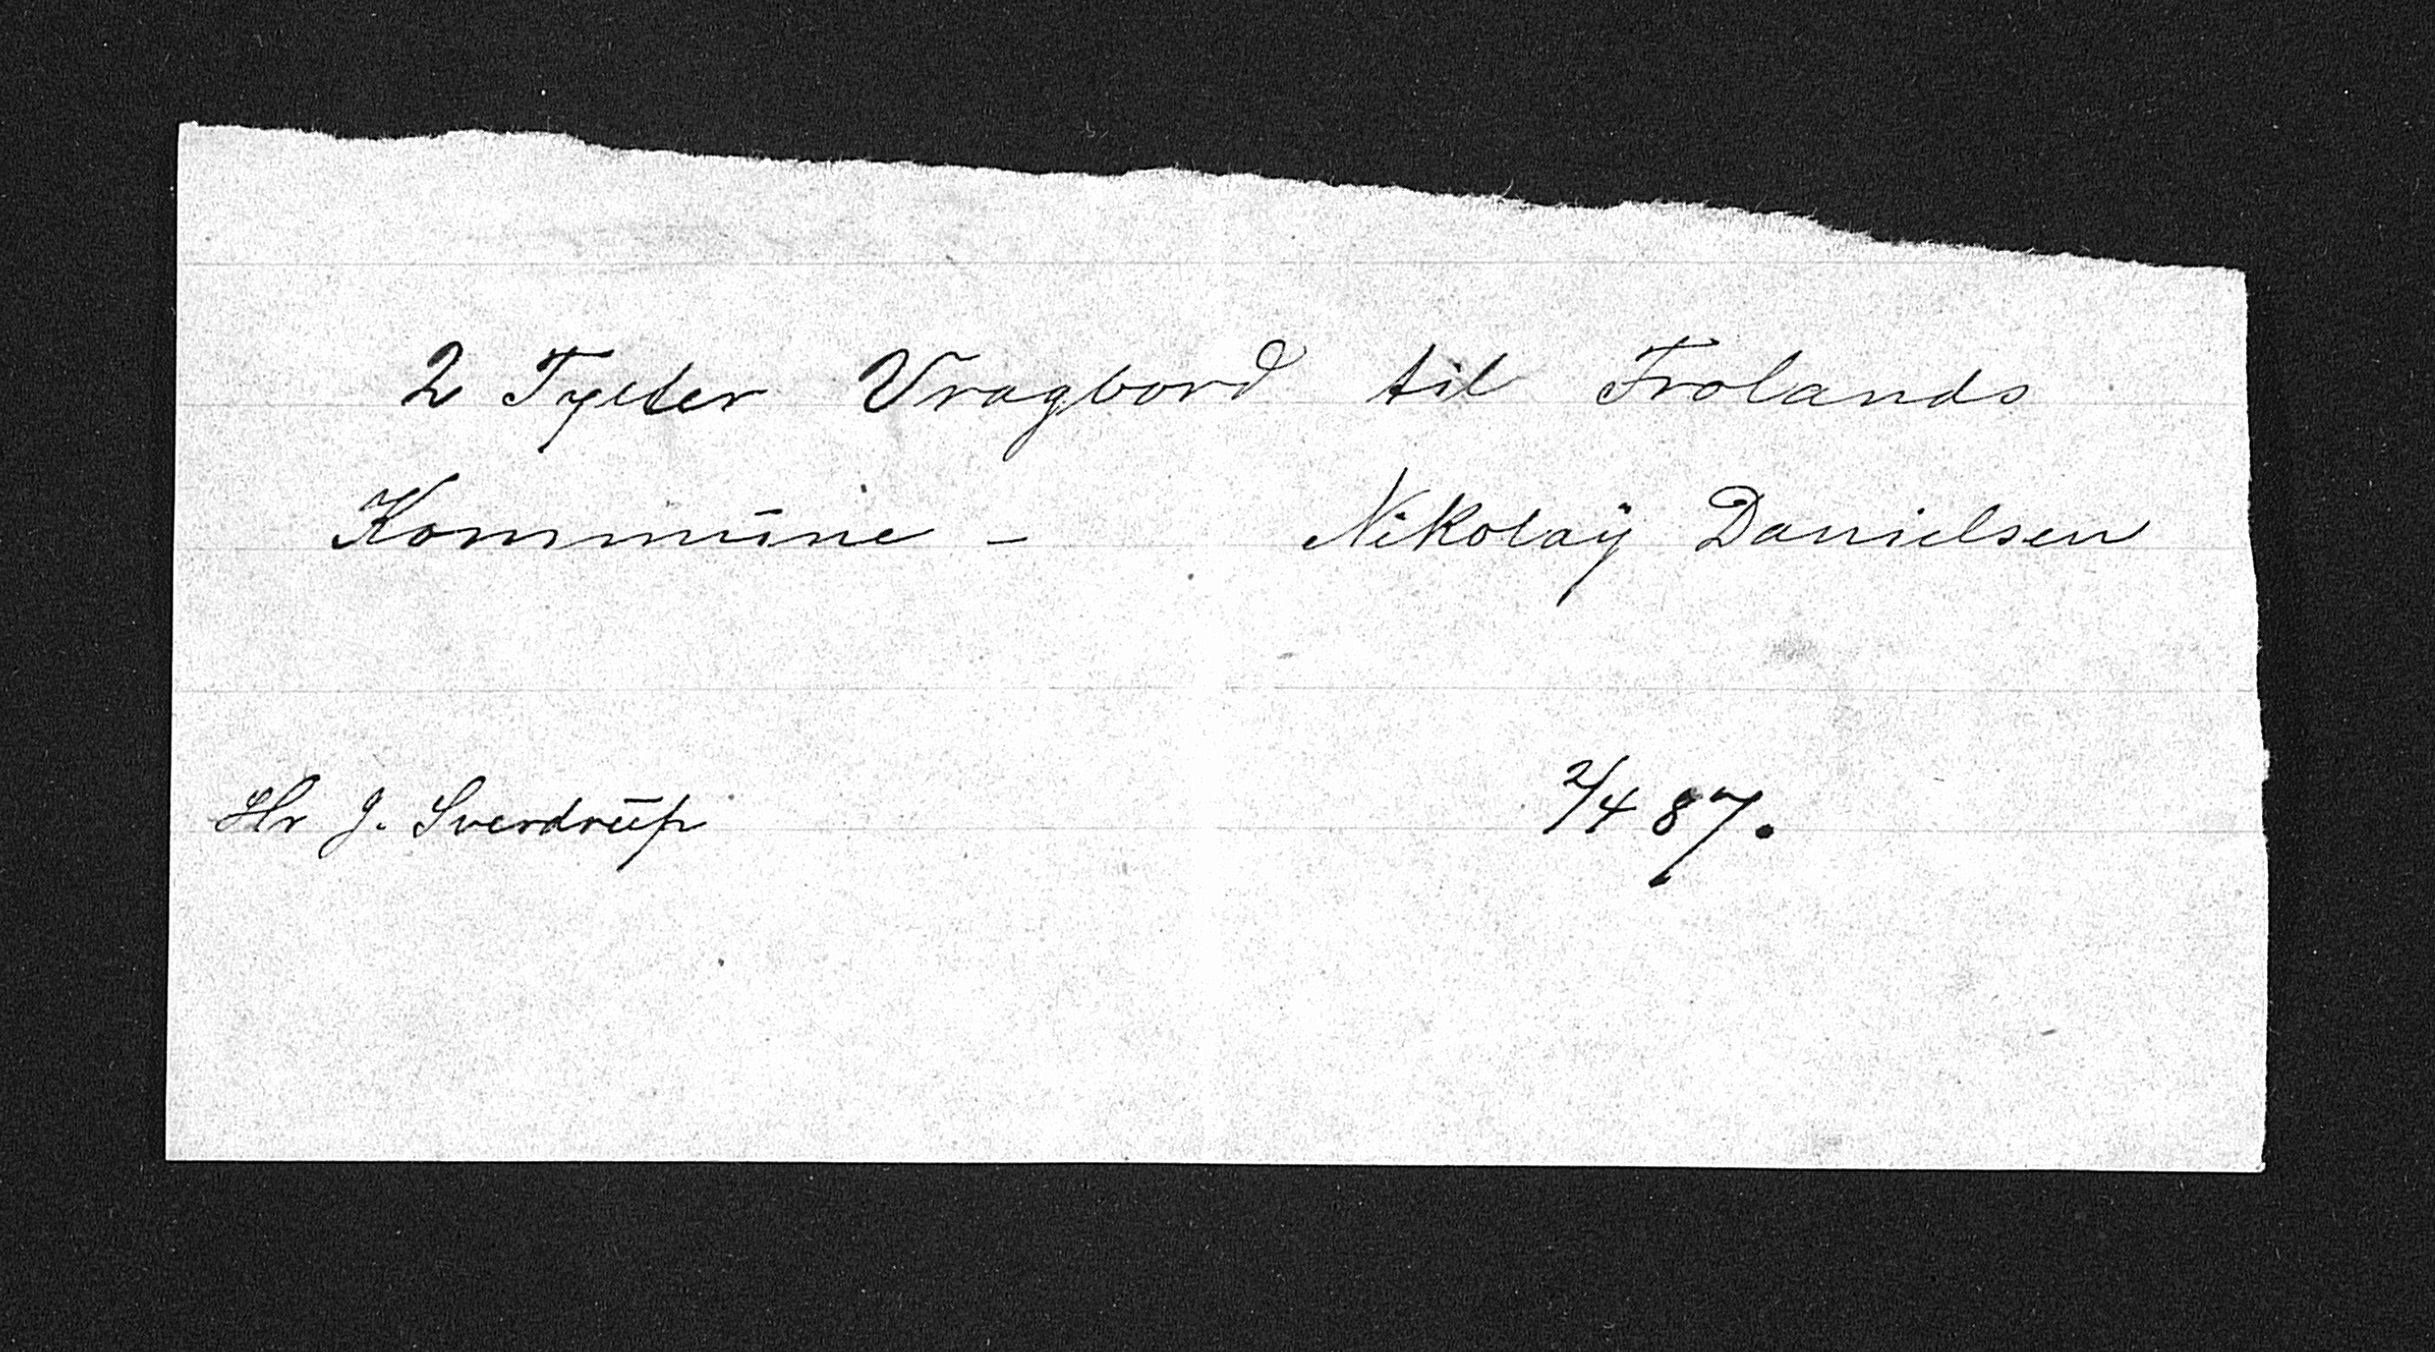 2 Tylter Vragbord til Frolands
Kommune - Nikolaÿ Danielsen
Hr J. Sverdrup
2/4 87.